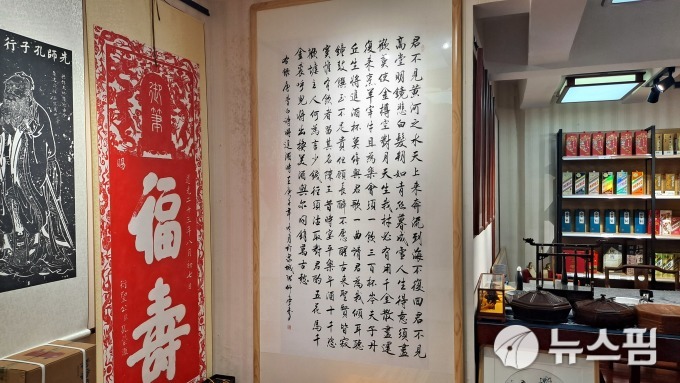 先師孔子行
御筆
賜
福壽
君不見黃河之水天上來奔流到海不復回君不見
高堂明鏡悲白髮朝如青絲暮成雪人生得意須盡
歡莫使金樽空對月天生我材必有用千金散盡還
復來烹羊宰牛且為樂會須一飲三百杯岑夫子丹
丘生將進酒杯莫停與君歌一曲請君為我傾耳聽
鐘鼓饌玉不足貴但願長醉不願醒古來聖賢皆寂
寞惟有飲者留其名陳王昔時宴平樂斗酒十千恣
歡謔主人何為言少錢徑須沽取對君酌五花馬千
金裘呼兒將出換美酒與爾同銷萬古愁
뉴스핌